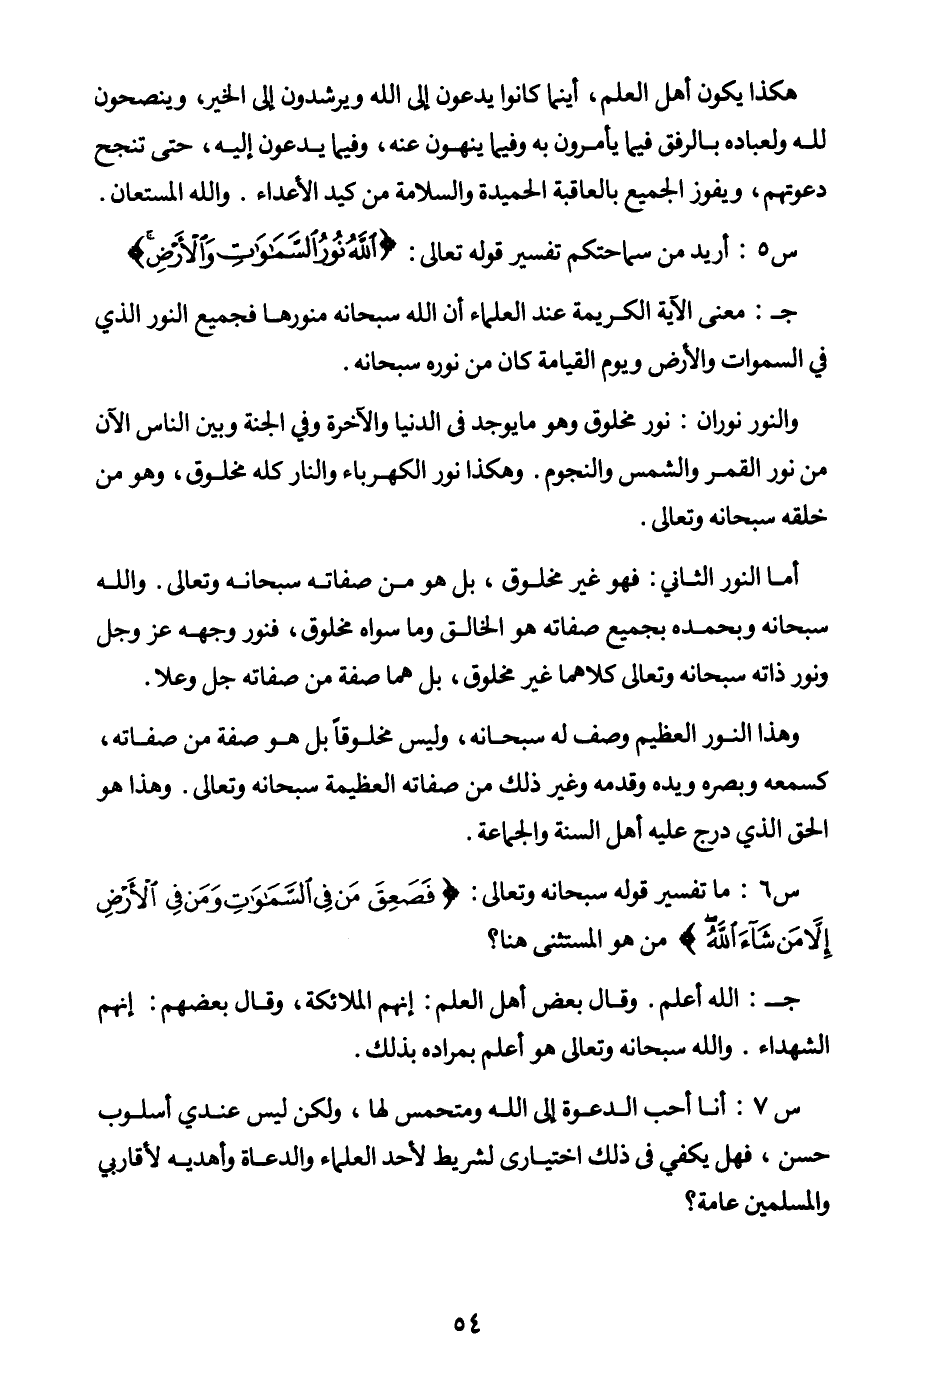 هكذا يكون أهل العلم، أينما كانوا يدعون إلى الله ويرشدون إلى الخير، وينصحون
لله ولعباده بالرفق فيما يأمرون به وفيما ينهون عنه، وفيما يدعون إليه، حتى تنجح
دعوتهم، ويفوز الجميع بالعاقبة الحميدة والسلامة من كيد الأعداء . والله المستعان.
س٥ : أريد من سماحتكم تفسير قوله تعالى: ﴿ٱللَّهُ نُورُ ٱلسَّمَٰوَٰتِ وَٱلْأَرْضِۚ﴾
جـ : معنى الآية الكريمة عند العلماء أن الله سبحانه منورها فجميع النور الذي
في السموات والأرض ويوم القيامة كان من نوره سبحانه.
والنور نوران : نور مخلوق وهو مايوجد فى الدنيا والآخرة وفي الجنة وبين الناس الآن
من نور القمر والشمس والنجوم. وهكذا نور الكهرباء والنار كله مخلوق، وهو من
خلقه سبحانه وتعالى.
أما النور الثاني: فهو غير مخلوق ، بل هو من صفاته سبحانه وتعالى. والله
سبحانه وبحمده بجميع صفاته هو الخالق وما سواه مخلوق، فنور وجهه عز وجل
ونور ذاته سبحانه وتعالى كلاهما غير مخلوق، بل هما صفة من صفاته جل وعلا.
وهذا النور العظيم وصف له سبحانه، وليس مخلوقاً بل هو صفة من صفاته،
كسمعه وبصره ويده وقدمه وغير ذلك من صفاته العظيمة سبحانه وتعالى. وهذا هو
الحق الذي درج عليه أهل السنة والجماعة.
س٦ : ما تفسير قوله سبحانه وتعالى: ﴿ فَصَعِقَ مَن فِى ٱلسَّمَٰوَٰتِ وَمَن فِى ٱلْأَرْضِ
إِلَّا مَن شَآءَ ٱللَّهُۖ ﴾ من هو المستثنى هنا؟
جـ : الله أعلم. وقال بعض أهل العلم: إنهم الملائكة، وقال بعضهم: إنهم
الشهداء . والله سبحانه وتعالى هو أعلم بمراده بذلك.
س٧ : أنا أحب الدعوة إلى الله ومتحمس لها ، ولكن ليس عندي أسلوب
حسن ، فهل يكفي فى ذلك اختيارى لشريط لأحد العلماء والدعاة وأهديه لأقاربي
والمسلمين عامة؟
٥٤